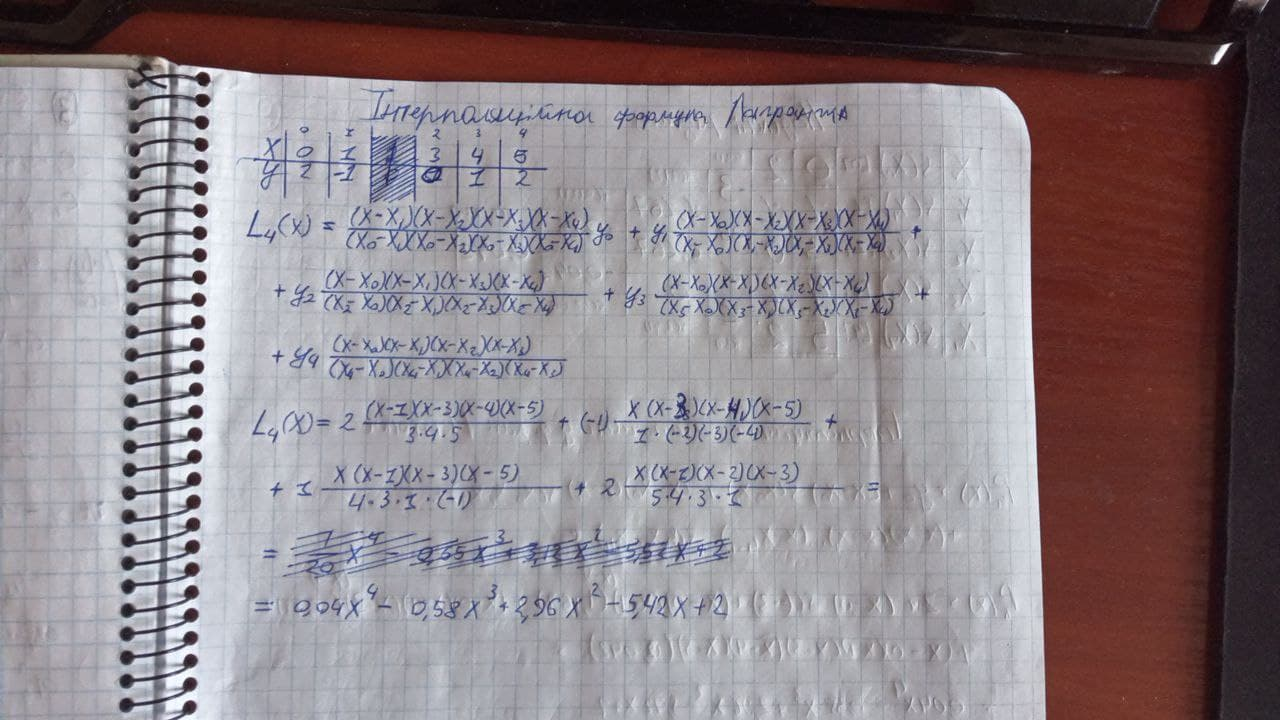 Інтерполяційна формула Лагранжа
0 1 2 3 4
X 0 1 3 4 5
y 2 -1 0 1 2
L₄(x) = (x-x₁)(x-x₂)(x-x₃)(x-x₄)/(x₀-x₁)(x₀-x₂)(x₀-x₃)(x₀-x₄) y₀ + y₁ (x-x₀)(x-x₂)(x-x₃)(x-x₄)/(x₁-x₀)(x₁-x₂)(x₁-x₃)(x₁-x₄) +
+ y₂ (x-x₀)(x-x₁)(x-x₃)(x-x₄)/(x₂-x₀)(x₂-x₁)(x₂-x₃)(x₂-x₄) + y₃ (x-x₀)(x-x₁)(x-x₂)(x-x₄)/(x₃-x₀)(x₃-x₁)(x₃-x₂)(x₃-x₄) +
+ y₄ (x-x₀)(x-x₁)(x-x₂)(x-x₃)/(x₄-x₀)(x₄-x₁)(x₄-x₂)(x₄-x₃)
L₄(x) = 2 (x-1)(x-3)(x-4)(x-5)/3·4·5 + (-1) x(x-3)(x-4)(x-5)/1·(-2)(-3)(-4) +
+ 1 x(x-1)(x-3)(x-5)/4·3·1·(-1) + 2 x(x-1)(x-2)(x-3)/5·4·3·1 =
= 0,04x⁴ - 0,58x³ + 2,96x² - 5,42x + 2